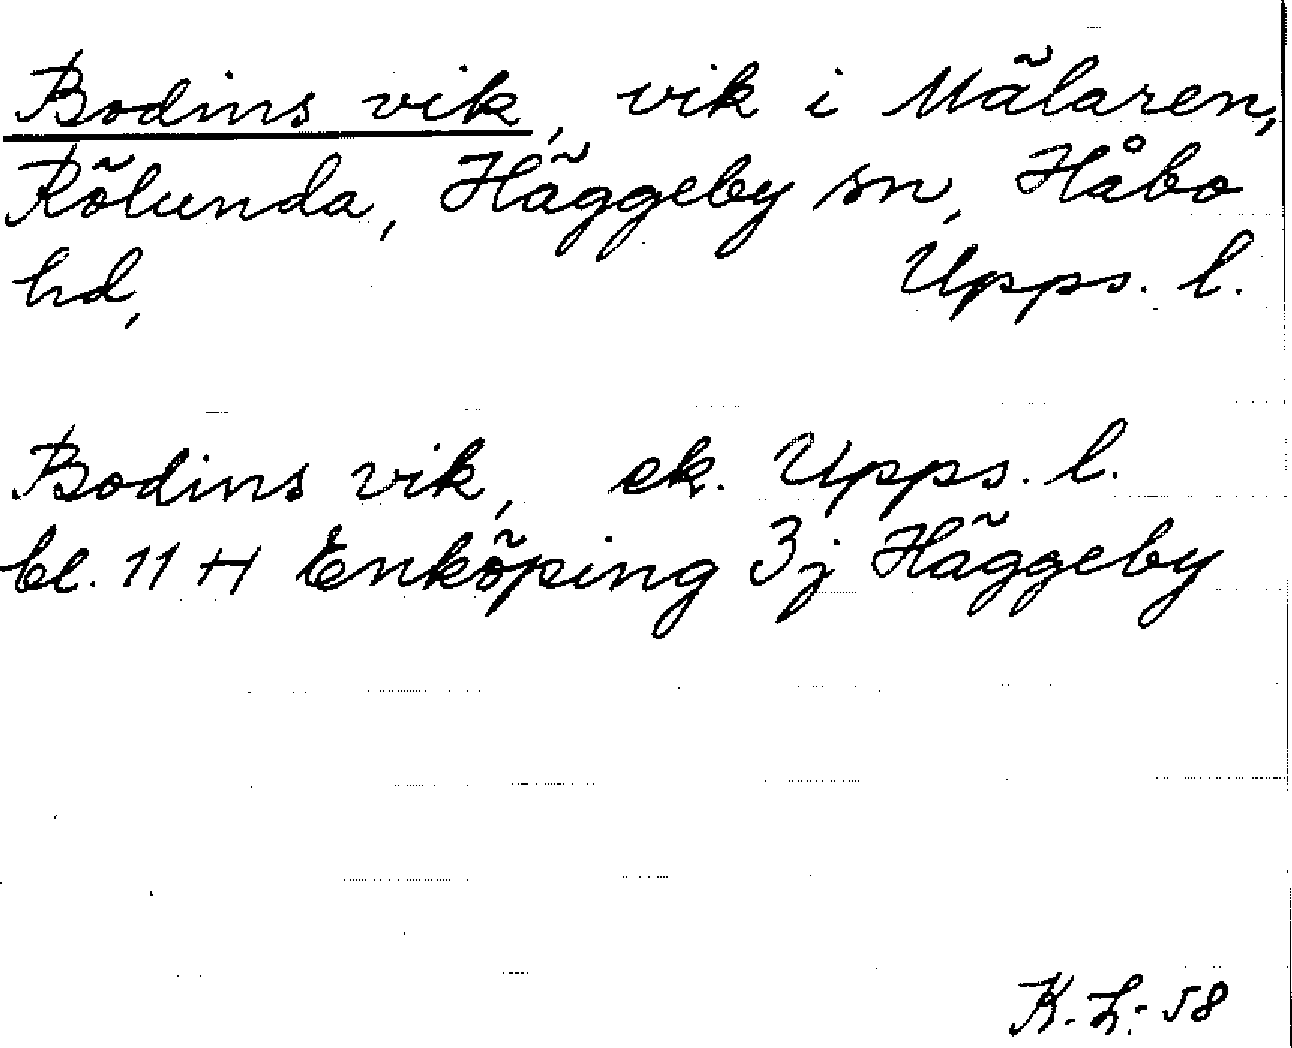 Bodins vik, vik i Mälaren,
Rölunda, Häggeby sn, Håbo
hd, Upps. l.
Bodins vik, ek. Upps. l.
bl. 11 H Enköping 3j Häggeby
K. L. -58